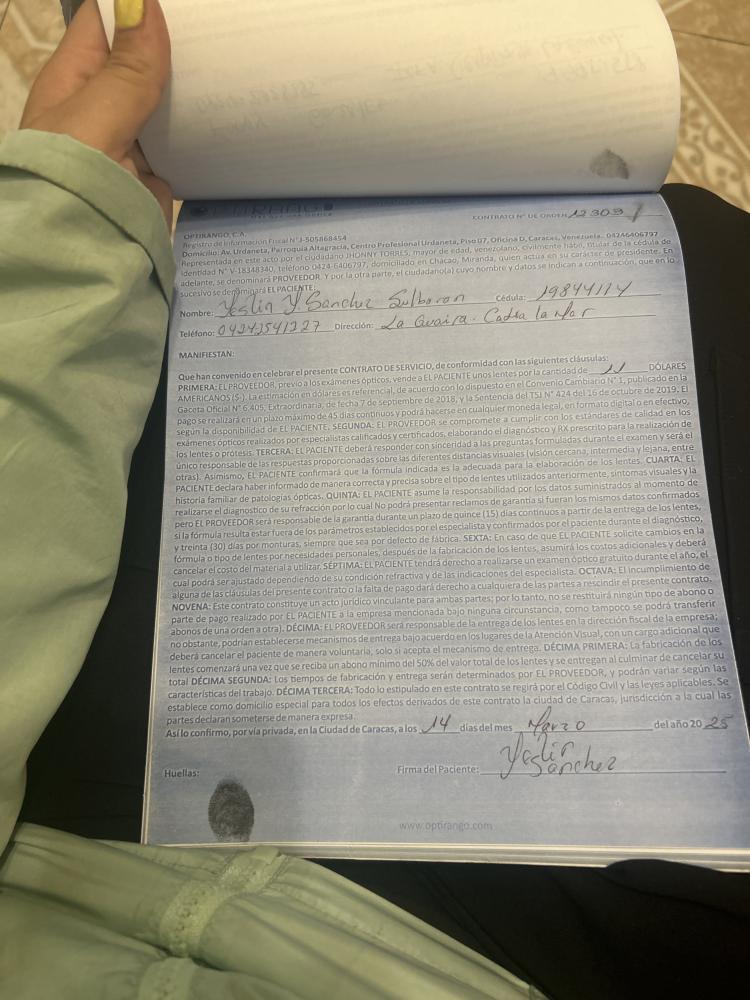 CONTRATO N° DE ORDEN 12303
OPTIRANGO, C.A.
Registro de Información Fiscal N° J-505868454
Domicilio: Av. Urdaneta, Parroquia Altagracia, Centro Profesional Urdaneta, Piso 07, Oficina D, Caracas, Venezuela. 04246406797
Representada en este acto por el ciudadano JHONNY TORRES, mayor de edad, venezolano, civilmente hábil, titular de la cédula de
identidad N° V-18348340, teléfono 0424-6406797, domiciliado en Chacao, Miranda, quien actua en su carácter de presidente. En
adelante, se denominará PROVEEDOR. Y por la otra parte, el ciudadano(a) cuyo nombre y datos se indican a continuación, que en lo
sucesivo se denominará EL PACIENTE:
Nombre: Yeslin Y. Sanchez Sulbaran Cédula: 19844114
Teléfono: 04243541227 Dirección: La Guaira. Catia la Mar
MANIFIESTAN:
Que han convenido en celebrar el presente CONTRATO DE SERVICIO, de conformidad con las siguientes cláusulas:
PRIMERA: EL PROVEEDOR, previo a los exámenes ópticos, vende a EL PACIENTE unos lentes por la cantidad de DÓLARES
AMERICANOS ($-). La estimación en dólares es referencial, de acuerdo con lo dispuesto en el Convenio Cambiario N° 1, publicado en la
Gaceta Oficial N° 6.405, Extraordinaria, de fecha 7 de septiembre de 2018, y la Sentencia del TSJ N° 424 del 16 de octubre de 2019. El
pago se realizará en un plazo máximo de 45 días continuos y podrá hacerse en cualquier moneda legal, en formato digital o en efectivo,
según la disponibilidad de EL PACIENTE. SEGUNDA: EL PROVEEDOR se compromete a cumplir con los estándares de calidad en los
exámenes ópticos realizados por especialistas calificados y certificados, elaborando el diagnóstico y RX prescrito para la realización de
los lentes o prótesis. TERCERA: EL PACIENTE deberá responder con sinceridad a las preguntas formuladas durante el examen y será el
único responsable de las respuestas proporcionadas sobre las diferentes distancias visuales (visión cercana, intermedia y lejana, entre
otras). Asimismo, EL PACIENTE confirmará que la fórmula indicada es la adecuada para la elaboración de los lentes. CUARTA: EL
PACIENTE declara haber informado de manera correcta y precisa sobre el tipo de lentes utilizados anteriormente, síntomas visuales y la
historia familiar de patologías ópticas. QUINTA: EL PACIENTE asume la responsabilidad por los datos suministrados al momento de
realizarse el diagnostico de su refracción por lo cual No podrá presentar reclamos de garantía si fueran los mismos datos confirmados
pero EL PROVEEDOR será responsable de la garantía durante un plazo de quince (15) días continuos a partir de la entrega de los lentes,
si la fórmula resulta estar fuera de los parámetros establecidos por el especialista y confirmados por el paciente durante el diagnóstico,
y treinta (30) días por monturas, siempre que sea por defecto de fábrica. SEXTA: En caso de que EL PACIENTE solicite cambios en la
fórmula o tipo de lentes por necesidades personales, después de la fabricación de los lentes, asumirá los costos adicionales y deberá
cancelar el costo del material a utilizar. SÉPTIMA: EL PACIENTE tendrá derecho a realizarse un examen óptico gratuito durante el año, el
cual podrá ser ajustado dependiendo de su condición refractiva y de las indicaciones del especialista. OCTAVA: El incumplimiento de
alguna de las cláusulas del presente contrato o la falta de pago dará derecho a cualquiera de las partes a rescindir el presente contrato.
NOVENA: Este contrato constituye un acto jurídico vinculante para ambas partes; por lo tanto, no se restituirá ningún tipo de abono o
parte de pago realizado por EL PACIENTE a la empresa mencionada bajo ninguna circunstancia, como tampoco se podrá transferir
abonos de una orden a otra). DÉCIMA: EL PROVEEDOR será responsable de la entrega de los lentes en la dirección fiscal de la empresa;
no obstante, podrían establecerse mecanismos de entrega bajo acuerdo en los lugares de la Atención Visual, con un cargo adicional que
deberá cancelar el paciente de manera voluntaria, solo si acepta el mecanismo de entrega. DÉCIMA PRIMERA: La fabricación de los
lentes comenzará una vez que se reciba un abono mínimo del 50% del valor total de los lentes y se entregan al culminar de cancelar su
total DÉCIMA SEGUNDA: Los tiempos de fabricación y entrega serán determinados por EL PROVEEDOR, y podrán variar según las
características del trabajo. DÉCIMA TERCERA: Todo lo estipulado en este contrato se regirá por el Código Civil y las leyes aplicables. Se
establece como domicilio especial para todos los efectos derivados de este contrato la ciudad de Caracas, jurisdicción a la cual las
partes declaran someterse de manera expresa.
Así lo confirmo, por vía privada, en la Ciudad de Caracas, a los 14 días del mes Marzo del año 2025
Huellas: Firma del Paciente: Yeslin Sanchez
www.optirango.com